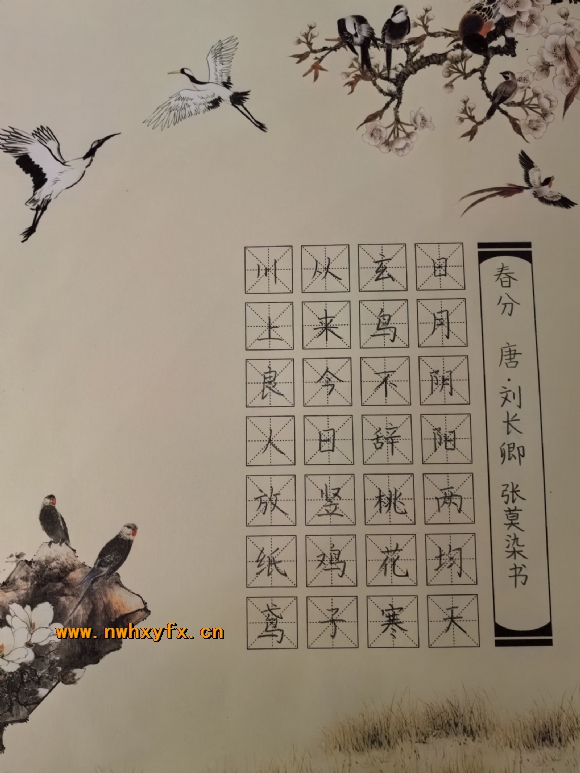 春分 唐·刘长卿 张莫染书
日月阴阳两均天
玄鸟不辞桃花寒
从来今日竖鸡子
川上良人放纸鸢
www.nwhxyfx.cn